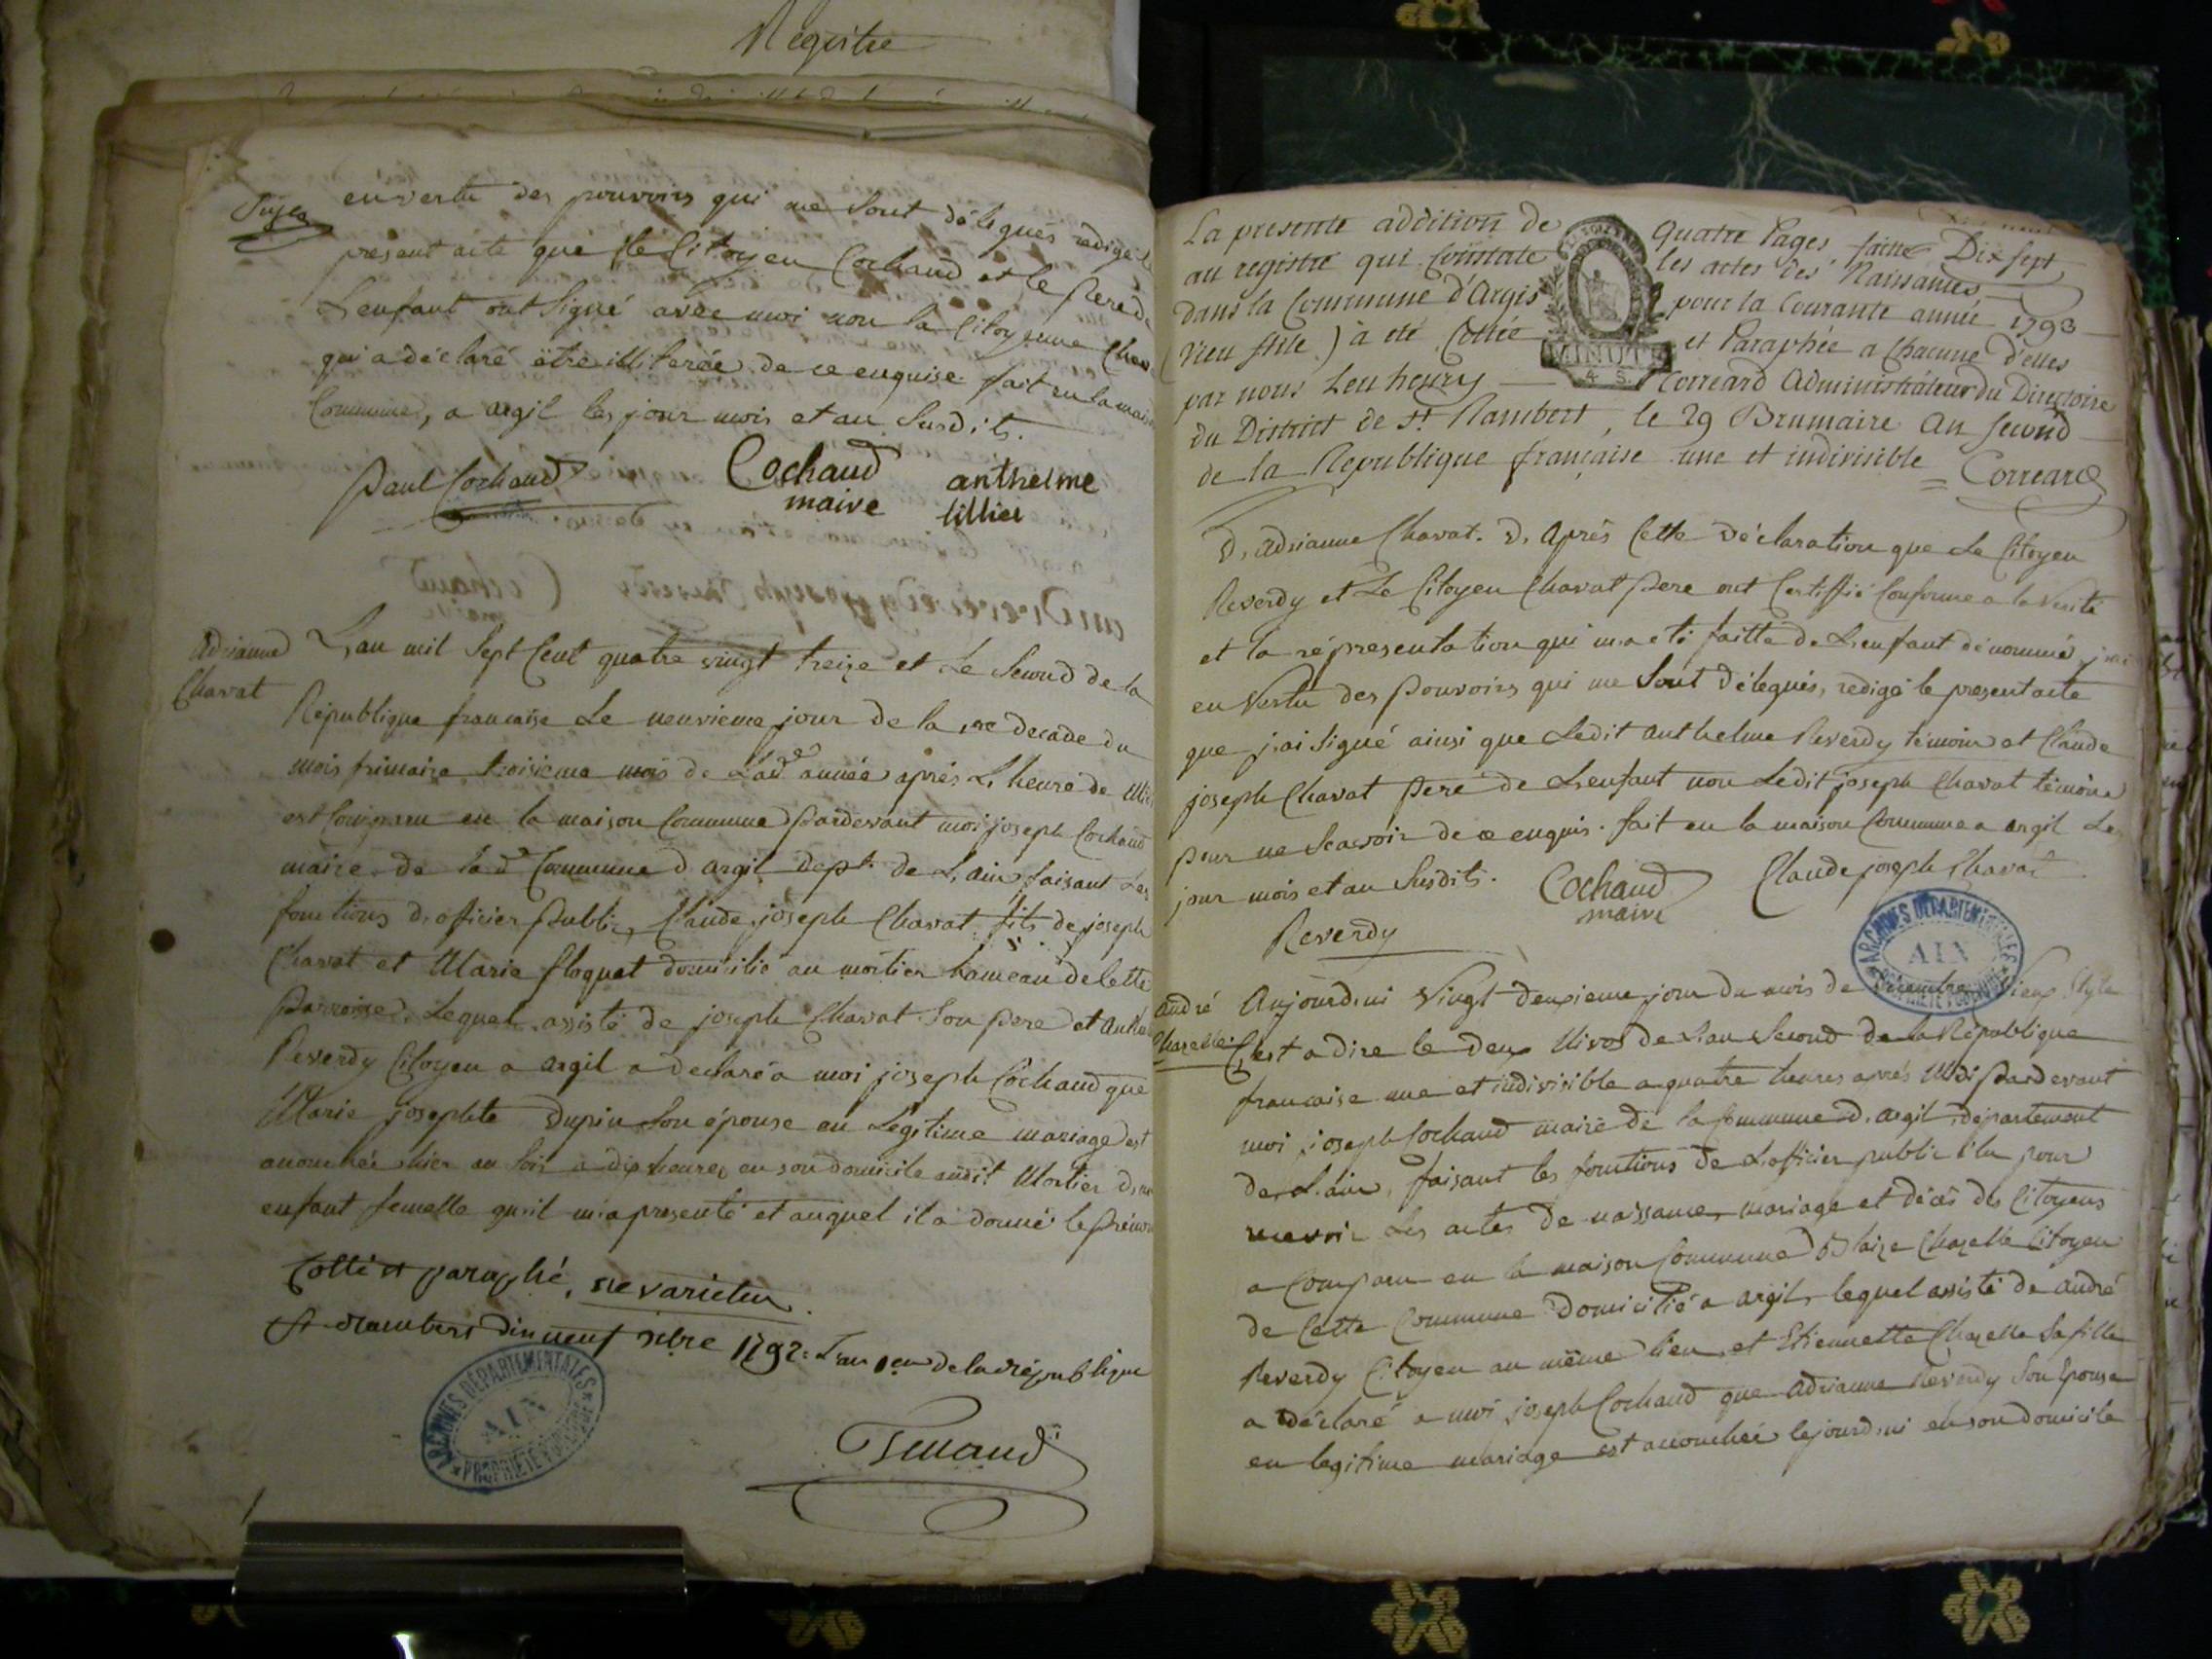 Registre
en vertu des pouvoirs qui me sont délegués redigé le
present acte que le Citoyen Cochaud et le pere de
L'enfant ont signé avec moi non la Citoyenne
qui a déclaré être illiterée de ce enquise fait en la maison
Commune, a argil les jour mois et an susdits.
paul Cochaud
Cochaud
maire
anthelme
lillier
Adrianne
Chavat
L'an mil sept cent quatre vingt treize et le second de la
République francaise le neuvieme jour de la 1re decade du
mois frimaire troisieme mois de lad.e année après L'heure de
est comparu en la maison Commune pardevant moi joseph Cochaud
maire de lad.e Commune d'argil dept. de L'ain faisant les
fonctions d'officier public, Claude joseph Chavat fils de joseph
Chavat et Marie floquet domicilié au mortier hameau de cette
parroisse, Lequel assisté de joseph Chavat son pere et
Reverdy Citoyen a argil a declaré a moi joseph Cochaud que
Marie josephte Dupin son épouse en Légitime mariage est
accouchée hier au soir a dix heures en son domicile audit Mortier
enfant femelle qu'il m'a presenté et auquel il a donné le prénom
Cotté et paraphé, ne varietur.
St rambert dix neuf xbre 1792. L'an 1er de la république
La presente addition de quatre Pages, faitte Dix sept
au registre qui Constate les actes des Naissances
dans la Commune d'Argis pour la Courante année 1793
(vieu stile) à été Cottée et Paraphée a Chacune d'elles
MINUTE
4 S.
par nous Leu henry Correard Administrateur du Directoire
du District de St Rambert, le 29 Brumaire an second
de la Republique française une et indivisible = Correard
d'adrianne Chavat. d'après Cette déclaration que Le Citoyen
Reverdy et Le Citoyen Chavat pere ont Certiffié Conforme a la Verité
et la répresentation qui m'a eté faitte de L'enfant dénommé, j'ai
en Vertu des Pouvoirs qui me sont délegués, redigé le present acte
que j'ai signé ainsi que Ledit anthelme Reverdy témoin et Claude
joseph Chavat pere de L'enfant non Ledit joseph Chavat témoin
pour ne scavoir de ce enquis. fait en la maison Commune a argil Les
jour mois et an susdits.
Cochaud
maire
Claude joseph Chavat
Reverdy
ARCHIVES DÉPARTEMENTALES
AIN
PROPRIÉTÉ PUBLIQUE
andré
Chazelle
Aujourd'hui Vingt deuxieme jour du mois de Décembre Vieux Style
C'est a dire le deux Nivos de L'an second de la République
francaise une et indivisible a quatre heures après Midi pardevant
moi joseph Cochaud maire de la Commune d'argil, département
de L'ain, faisant les fonctions de L'officier public élu pour
recevoir Les actes de naissance, mariage et décès des Citoyens
a Comparu en la maison Commune Blaize Chazelle Citoyen
de Cette Commune domicilié a argil, lequel assisté de andré
Reverdy Citoyen au même lieu, et Etiennette Chazelle sa fille
a déclaré a moi joseph Cochaud que adrianne Reverdy son Epouse
en legitime mariage est accouchée lejourd'hui en son domicile
ARCHIVES DÉPARTEMENTALES
AIN
PROPRIÉTÉ PUBLIQUE